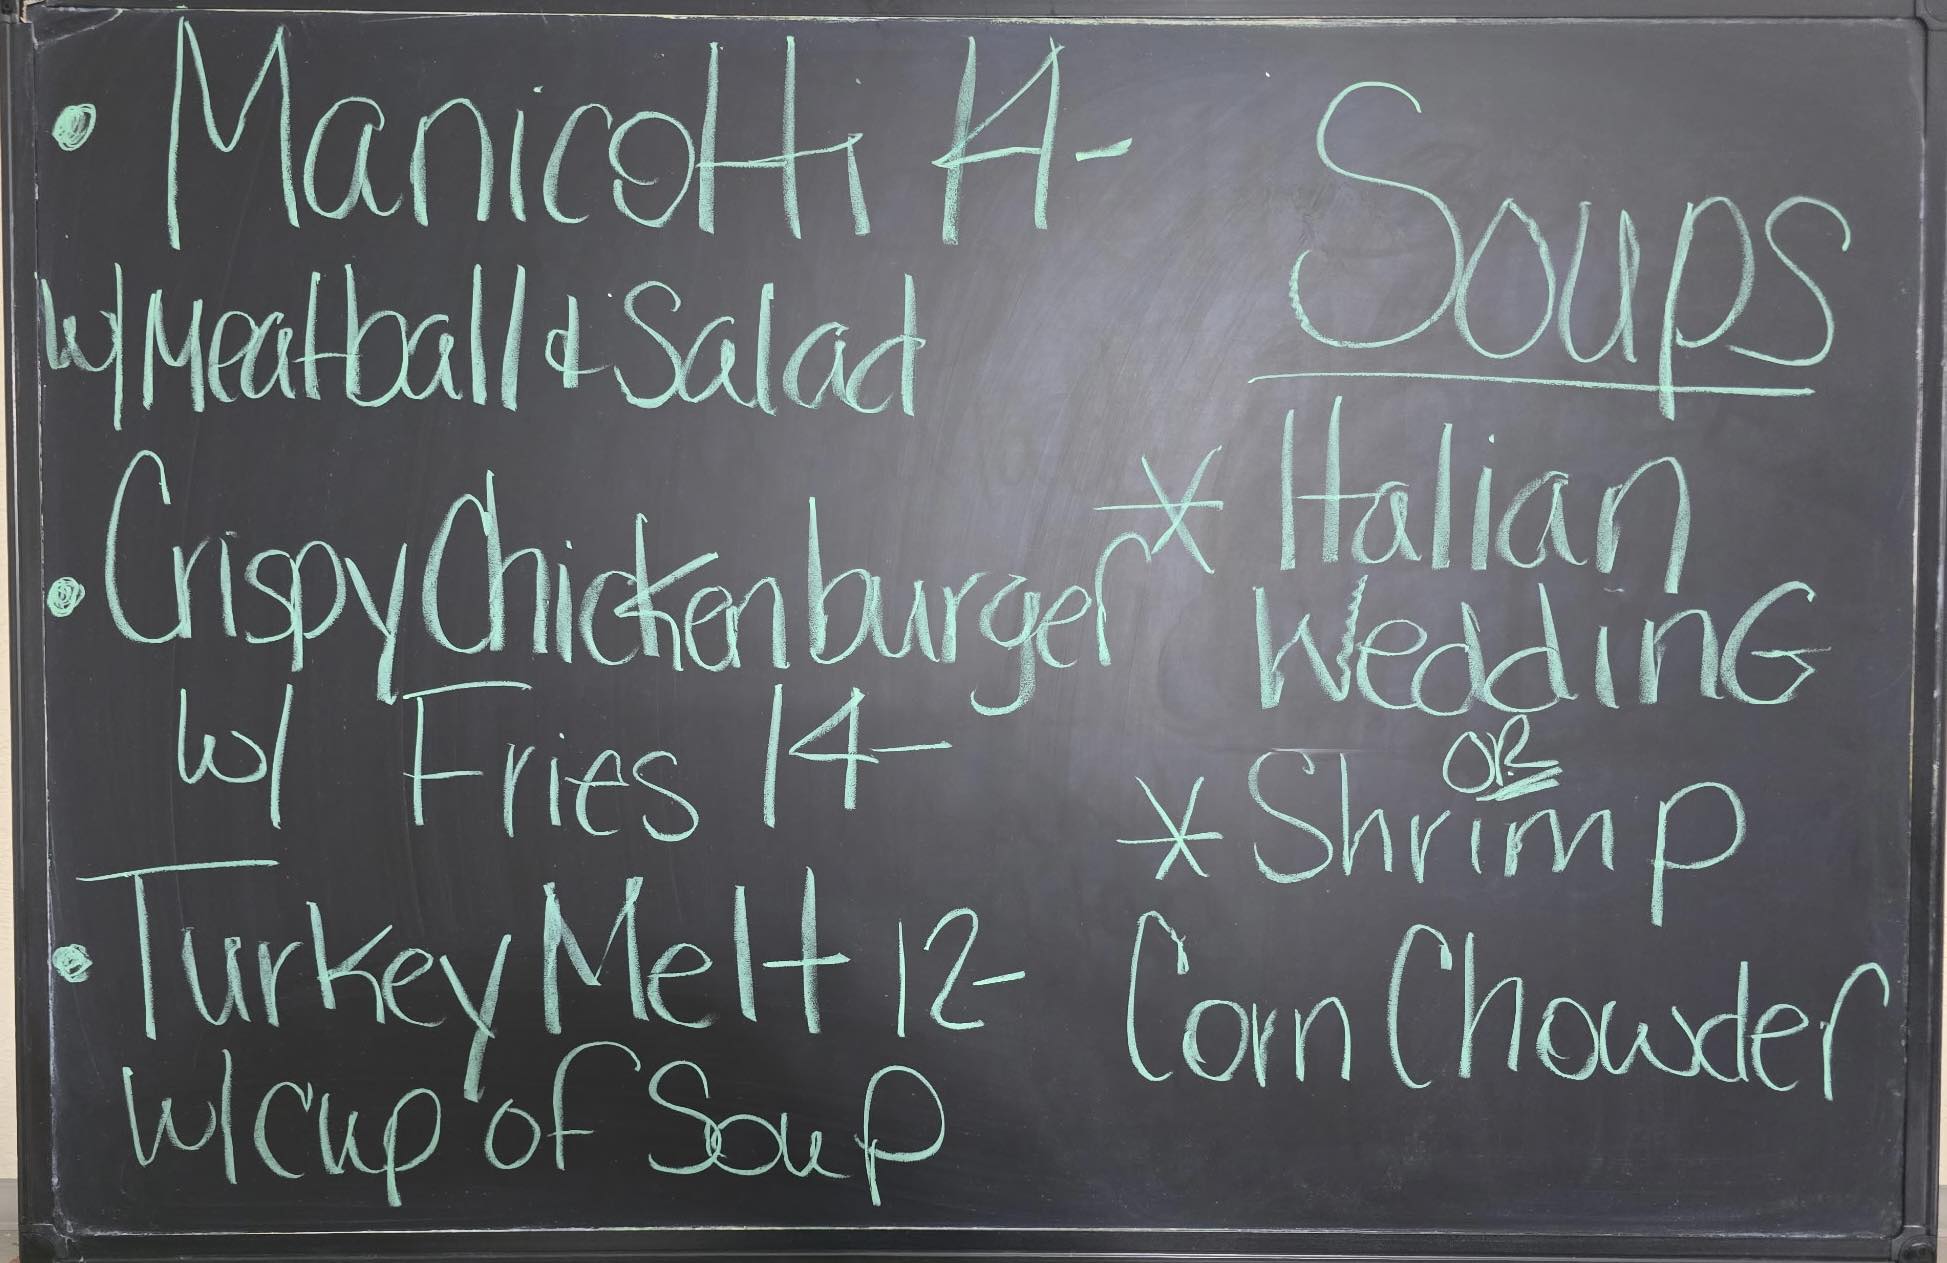 • Manicotti 14-
w/ Meatball & Salad
• Crispy Chickenburger
w/ Fries 14-
• Turkey Melt 12-
w/ cup of Soup
Soups
* Italian
WeddinG
OR
* Shrimp
Corn Chowder